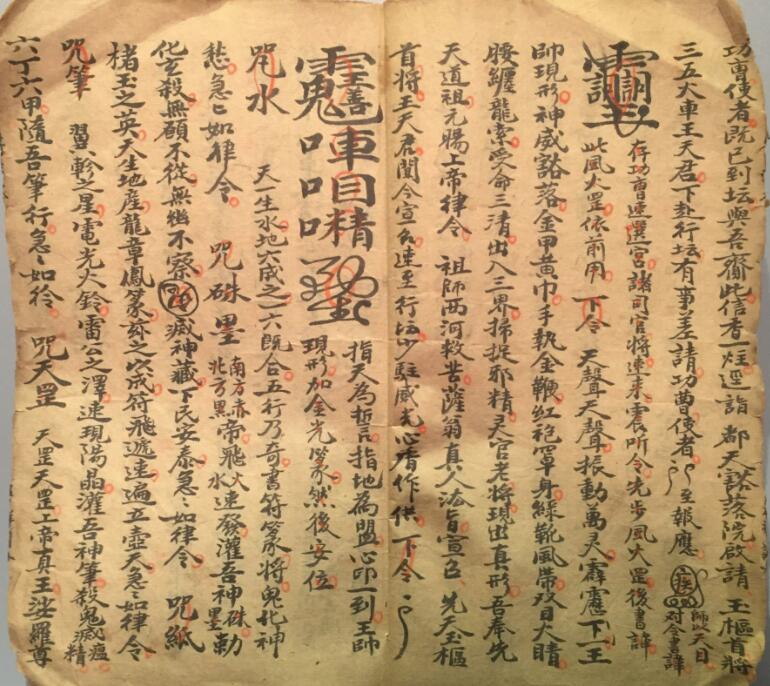 功曹使者既已到坛與吾齎此信香一炷逕詣 都天豁落院啟請 玉樞首將
三五火車王天君下赴行坛有事差請功曹使者 至報應
師幼天目
对令書諱
存功曹速選宮諸司官將速來震所令先步風火罡後書諱
此風火罡依前用 下令 天聲天聲振動萬灵霹靂下一王
帥現形神威豁落金甲黄巾手執金鞭紅袍罩身綠靴風帶双目大睛
腰纏龍索受命三清出入三界掃捉邪精灵官老將現出真形吾奉先
天道祖元賜上帝律令 祖師西河救苦薩翁真人法旨宣召 先天玉樞
首將王天君聞令宣召速至行坛少駐威光心香作供下令
指天為誓言指地為盟心印一到王帥
現形加金光篆然後安位
咒水 天一生水地六成之一六既合五行乃奇書符篆將鬼化神
愁急急如律令 咒硃墨 南方赤 北方黑 帝飛火 水 速發灌吾神硃 墨 勅
化玄殺無碩不從無幽不察 滅神藏下民安泰急急如律令 咒紙
楮玉之英天生地產龍章鳳篆劾之以成符飛遞速遍立壺天急急如律令
咒筆 翼軫之星電光火鈴雷公之澤速現陽晶灌吾神筆殺鬼滅瘟精
六丁六甲隨吾筆行急急如律令 咒天罡 天罡天罡上帝真王娑羅尊